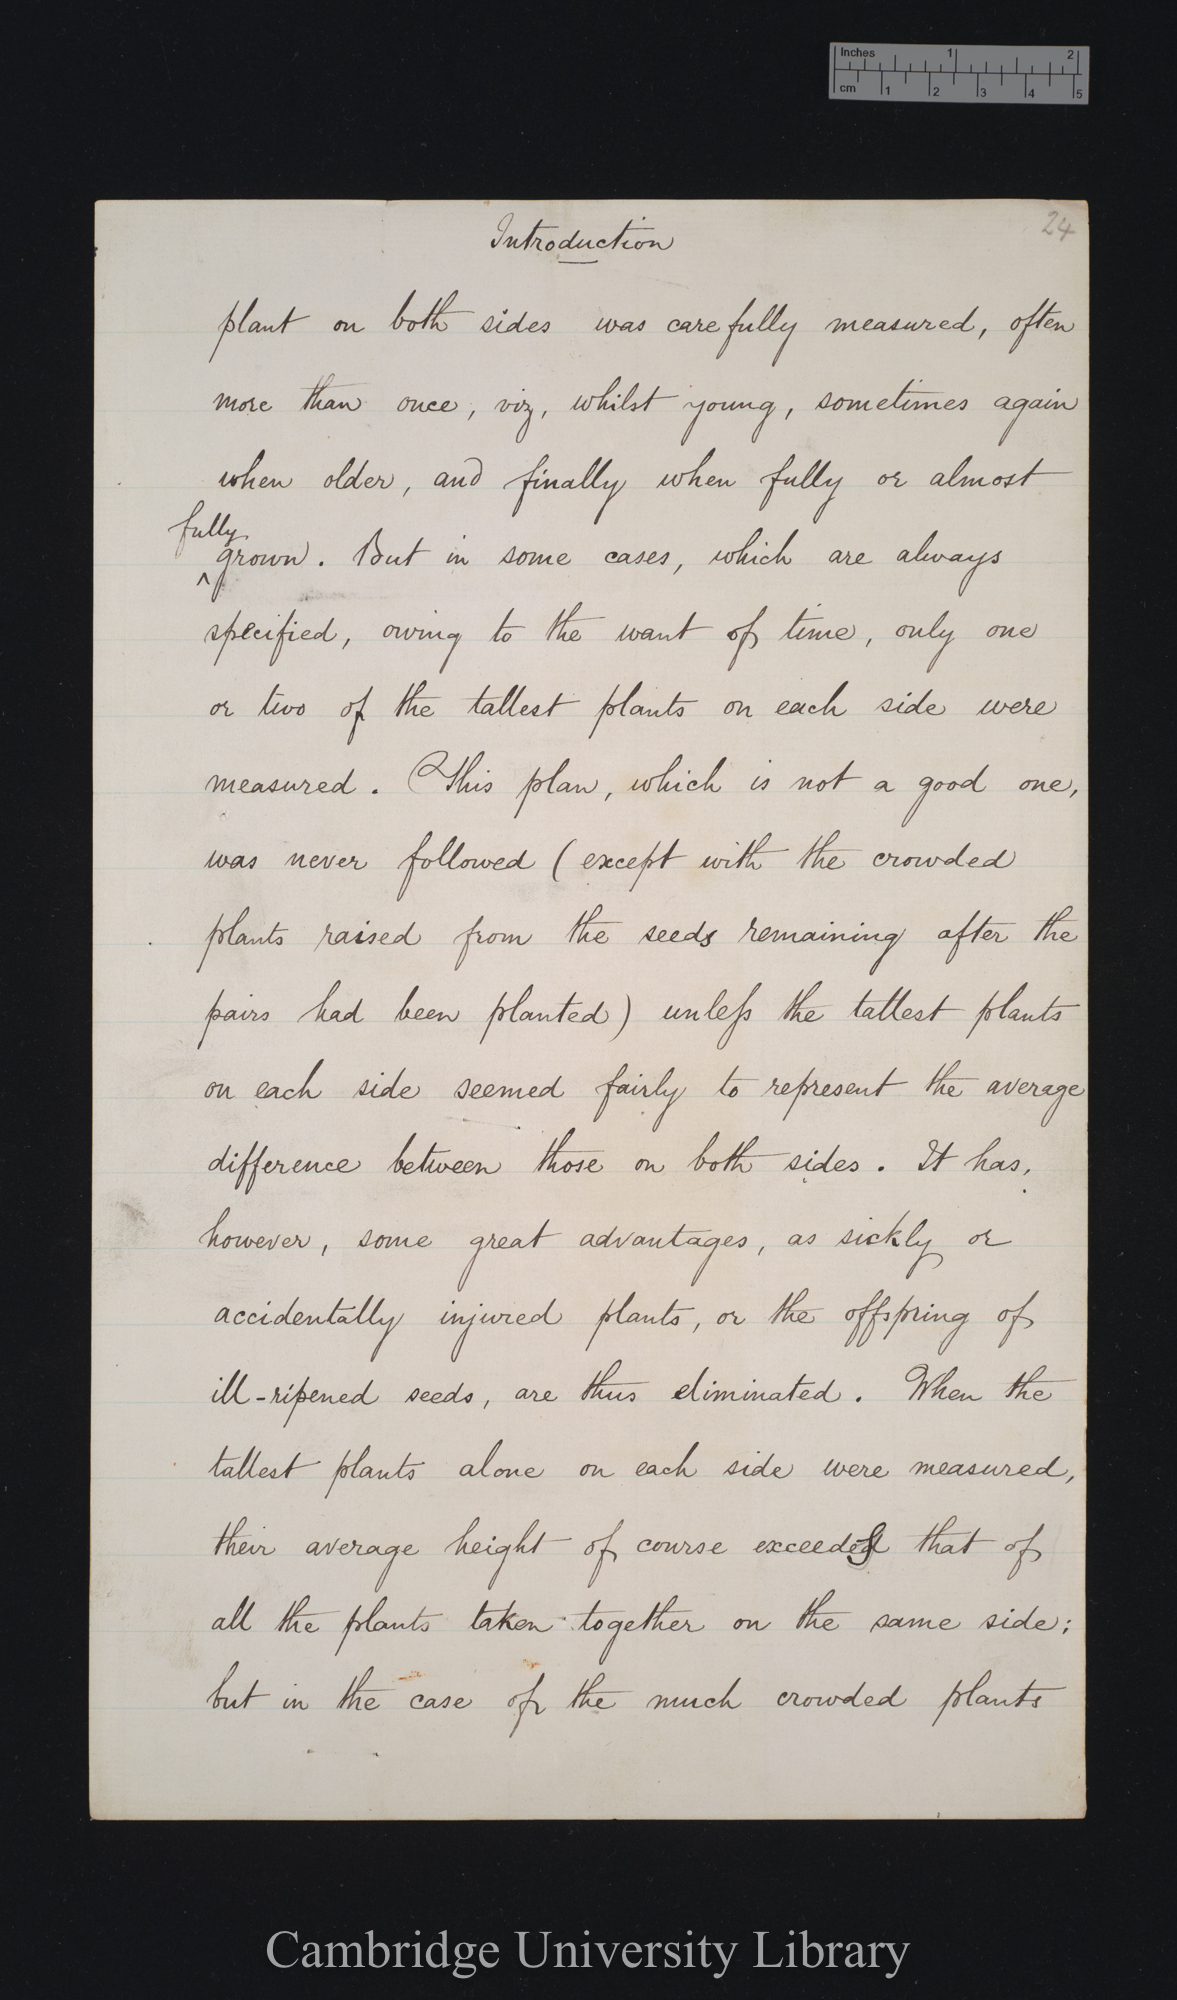 Inches 1 2
cm 1 2 3 4 5
24
Introduction
plant on both sides was carefully measured, often
more than once, viz, whilst young, sometimes again
when older, and finally when fully or almost
fully
^grown. But in some cases, which are always
specified, owing to the want of time, only one
or two of the tallest plants on each side were
measured. This plan, which is not a good one,
was never followed (except with the crowded
plants raised from the seeds remaining after the
pairs had been planted) unless the tallest plants
on each side seemed fairly to represent the average
difference between those on both sides. It has,
however, some great advantages, as sickly or
accidentally injured plants, or the offspring of
ill-ripened seeds, are thus eliminated. When the
tallest plants alone on each side were measured,
their average height of course exceeds that of
all the plants taken together on the same side;
but in the case of the much crowded plants
Cambridge University Library